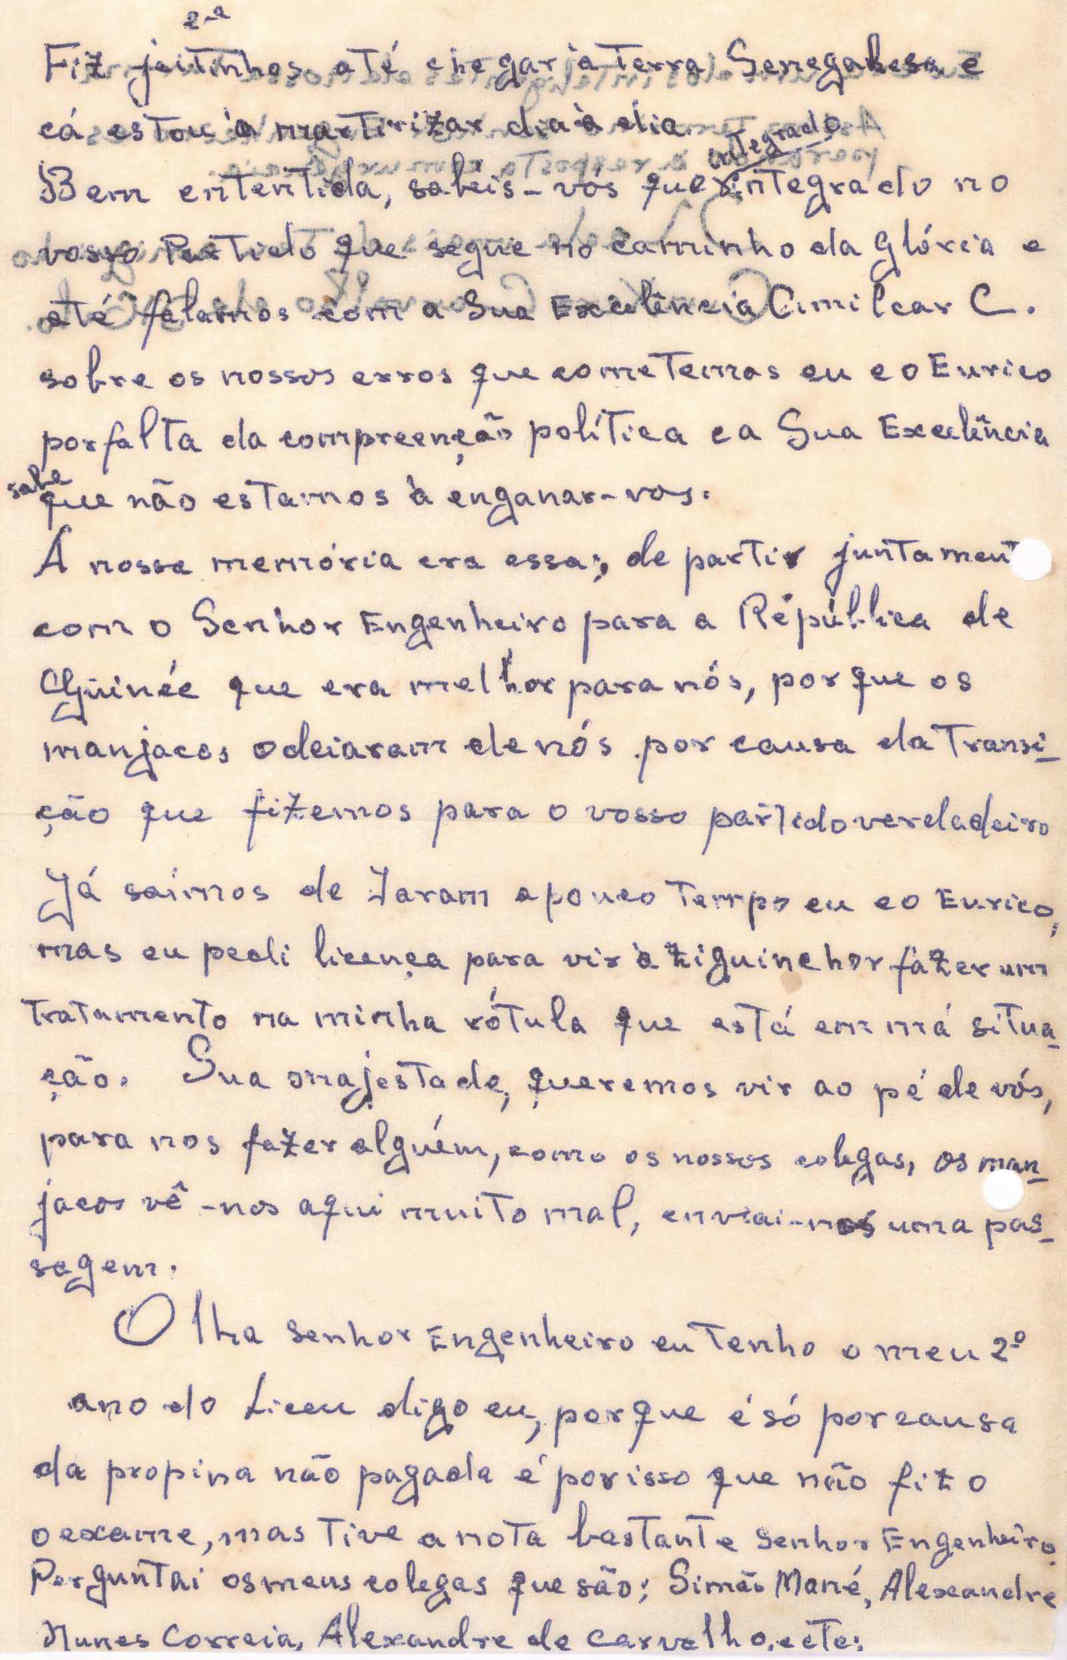 2-a
Fiz jeitinhos até chegar à Terra Senegalesa e
cá estou à martirizar dia à dia
Bem ententida, sabeis-vós que integrado no
integrado
vosso Partido que segue no caminho da Glória e
até falamos com a Sua Excelência Amilcar C.
sobre os nossos erros que cometemos eu e o Eurico
por falta da compreenção política e a Sua Excelência
sabe
que não estamos à enganar-vos.
A nossa memória era essa; de partir juntament
com o Senhor Engenheiro para a Répública de
Guinée que era melhor para nós, porque os
manjacos odeiaram de nós por causa da Transi-
ção que fizemos para o vosso partido verdadeiro
Já saímos de Jaram a pouco Tempo eu e o Eurico,
mas eu pedi licença para vir à Ziguinchor fazer um
Tratamento na minha rótula que está em má situa-
ção. Sua majestade, queremos vir ao pé de vós,
para nos fazer alguém, como os nossos colegas, os man-
jacos vê-nos aqui muito mal, enviai-nos uma pas-
sagem.
Olha Senhor Engenheiro eu Tenho o meu 2º
ano do Liceu digo eu, porque é só por causa
da propina não pagada é por isso que não fiz o
o exame, mas Tive a nota bastante Senhor Engenheiro.
Perguntai os meus colegas que são; Simão Mané, Alexandre
Nunes Correia, Alexandre de Carvalho, e etc;